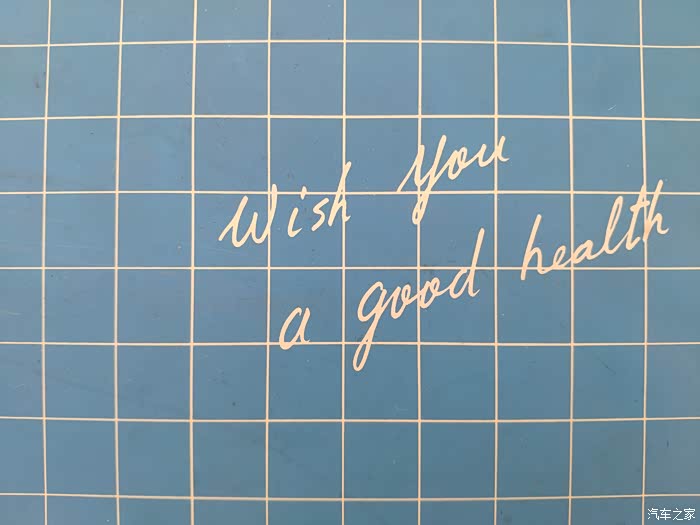 Wish You
a good health
汽车之家